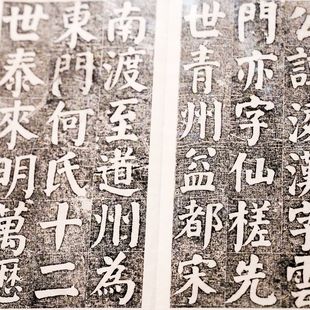 公諱淩漢字雲
門亦字仙槎先
世青州益都宋
南渡至道州為
東門何氏十二
世泰來明萬歷